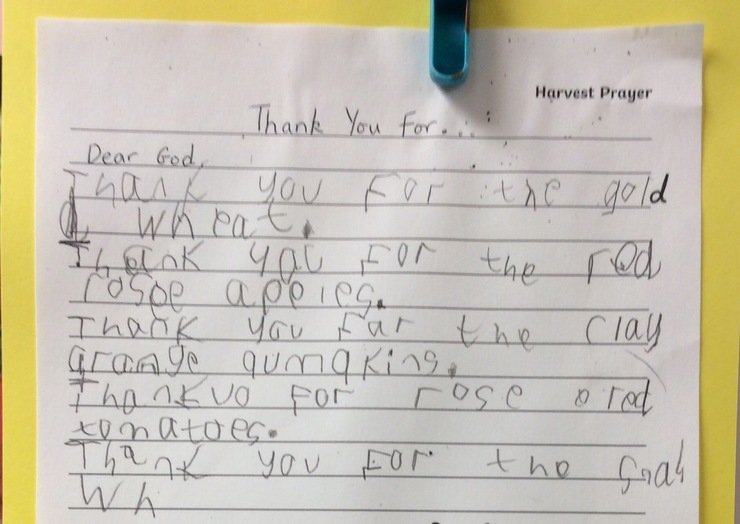 Harvest Prayer
Thank You For...
Dear God,
Thank you For the gold
Wheat.
Thank you For the red
rosoe appies.
Thank you Far the Clay
arange qumqkins.
Thank vo For rose o red
tomatoes.
Thank you For the
Wh